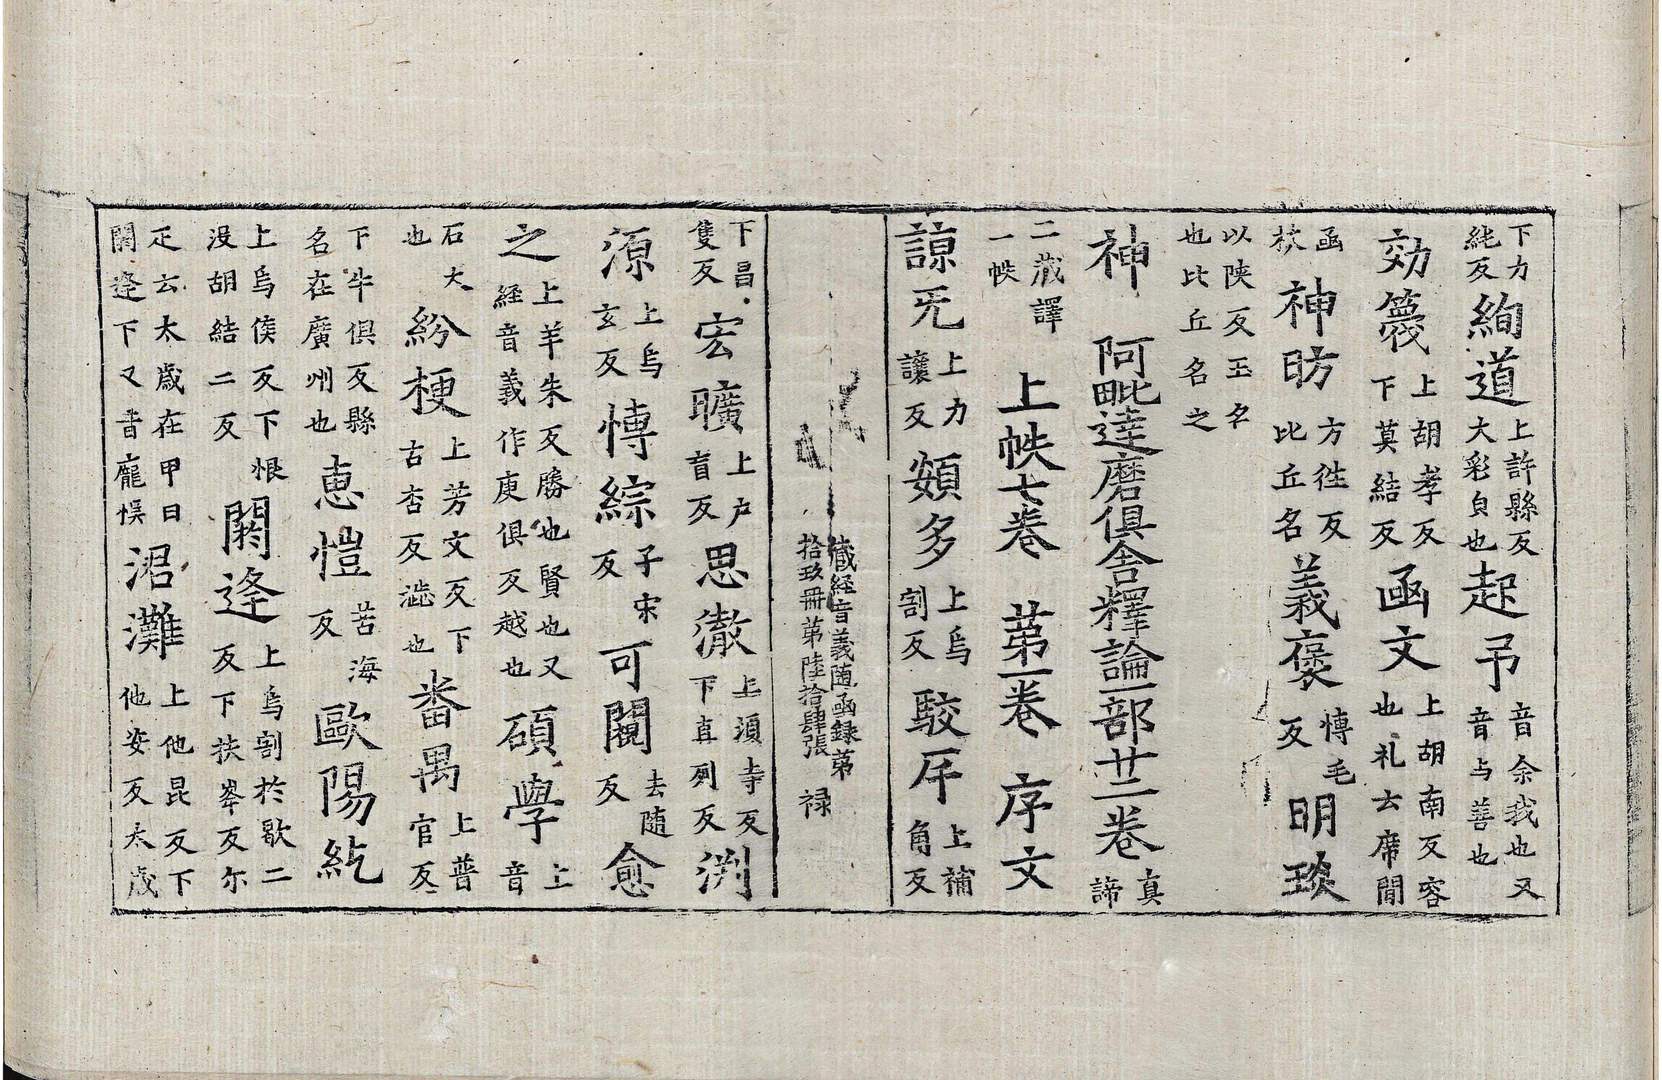 下力純反絢道上許縣反大彩皃也起予音余我也又音与善也
効篾上胡孝反下莫結反函文上胡南反容也礼云席間
函杖神昉方往反比丘名義褒博毛反明琰
以陝反玉名也比丘名之
神 阿毗達磨俱舍釋論一部廿二卷真諦
二藏譯一帙 上帙七卷 第一卷 序文
諒旡上力讓反頞多上烏割反駮斥上補角反
藏經音義随函錄第
拾玖冊第陸拾肆張 禄
下昌隻反宏曠上户盲反思澈上湏寺反下直列反渊
源上烏玄反博綜子宋反可閱去随反愈
之上羊朱反勝也賢也又經音義作庾俱反越也碩學上音
石大也紛梗上芳文反下古杏反澁也番禺上普官反
下牛俱反縣名在廣州也惠愷苦海反歐陽紇
上烏侯反下恨没胡結二反閼逢上烏割於歇二反下扶峯反尓
疋云太歲在甲曰閼逢下又音龐悮涒灘上他昆反下他姿反太歲